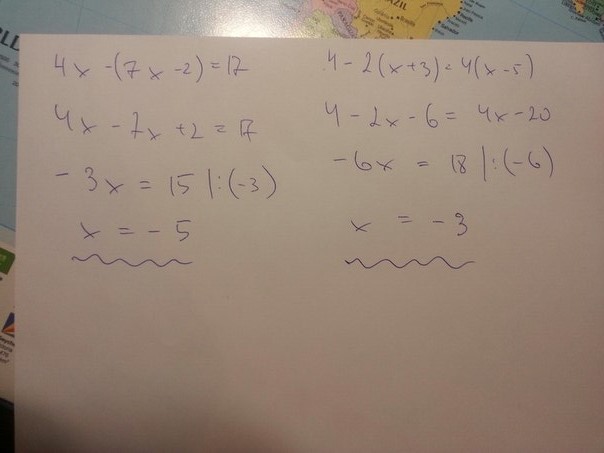 ZIL
4x - (7x - 2) = 17
4x - 7x + 2 = 17
- 3x = 15 |:(-3)
x = - 5
4 - 2(x+3) = 4(x-5)
4 - 2x - 6 = 4x - 20
- 6x = 18 |:(-6)
x = - 3